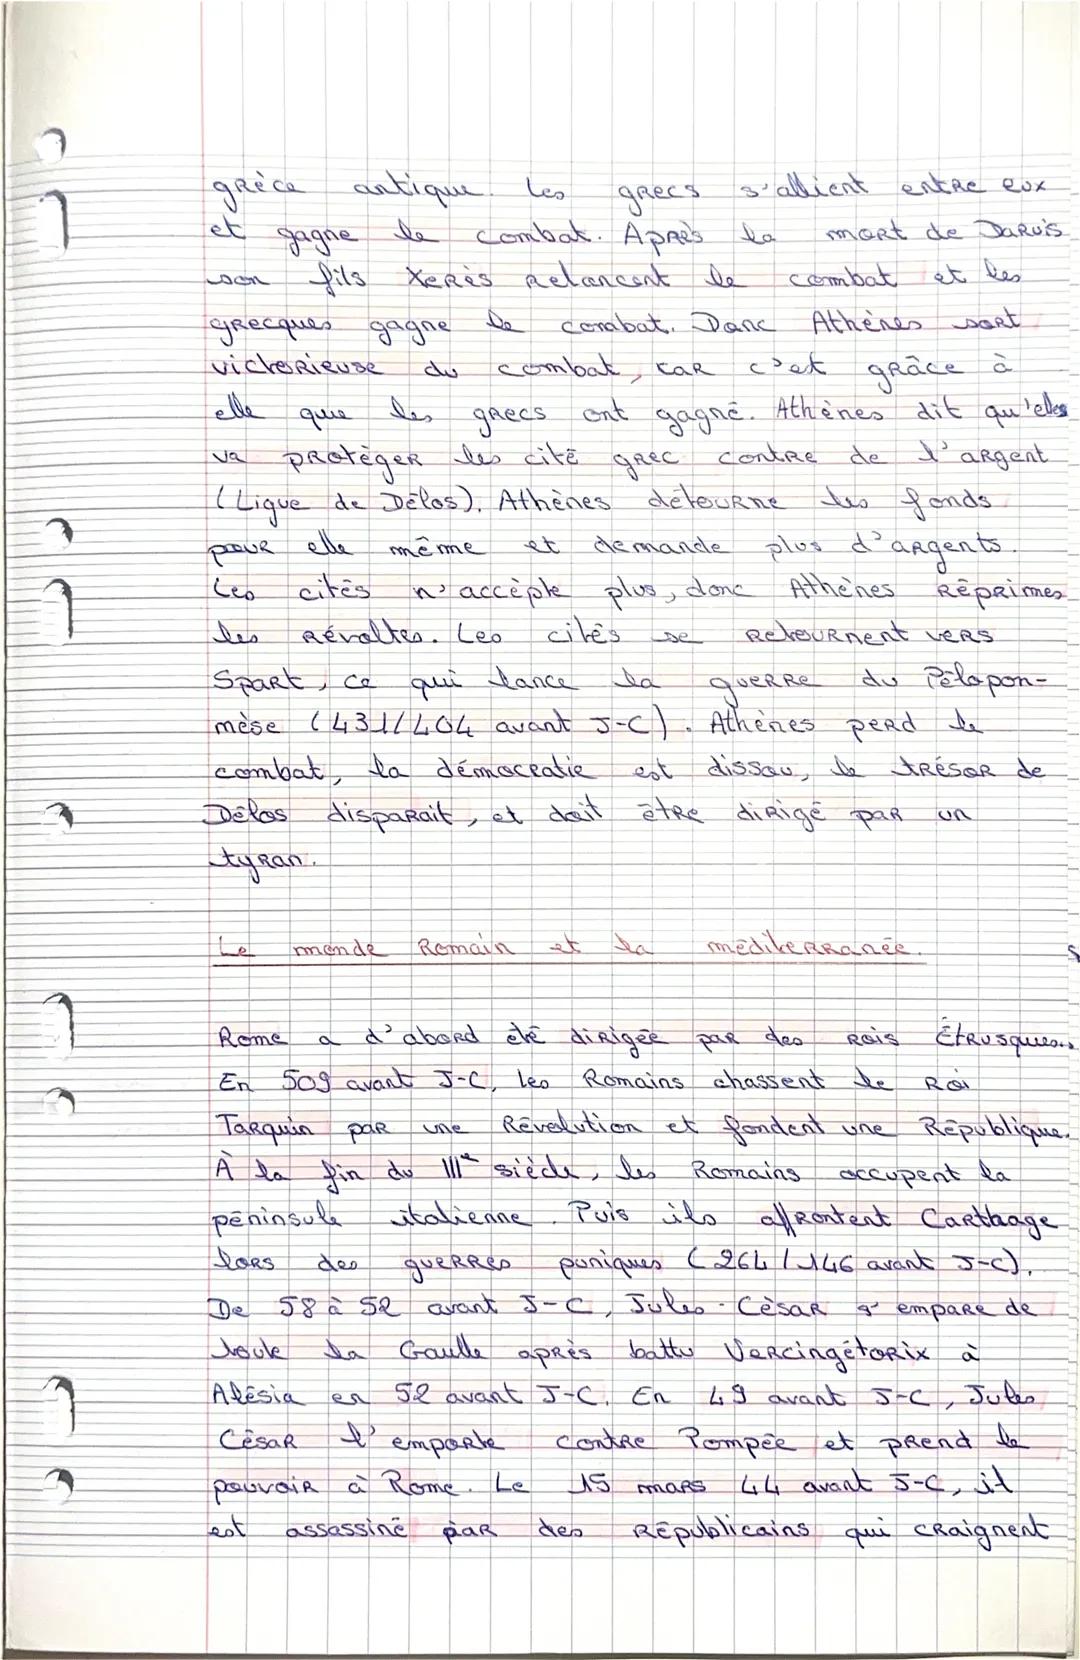 grèce antique. Les grecs s'allient entre eux
et gagne le combat. Après la mort de Daruis
son fils Xerès relancent le combat et les
grecques gagne le combat. Donc Athènes sort
victorieuse du combat, car c'est grâce à
elle que les grecs ont gagné. Athènes dit qu'elles
va protéger les cité grec contre de l'argent
(Ligue de Délos). Athènes détourne les fonds
pour elle même et demande plus d'argents.
Les cités n'accèpte plus, donc Athènes réprimes
les révoltes. Les cités se retournent vers
Spart, ce qui lance la guerre du Pélopon-
mèse (431/404 avant J-C). Athènes perd le
combat, la démocratie est dissou, le trésor de
Délos disparait, et doit être dirigé par un
tyran.
Le monde Romain et la méditerranée.
Rome a d'abord été dirigée par des rois Étrusques.
En 509 avant J-C, les Romains chassent le Roi
Tarquin par une Révolution et fondent une République.
À la fin du IIIe siècle, les Romains occupent la
péninsule italienne. Puis ils affrontent Carthage
lors des guerres puniques (264/146 avant J-C).
De 58 à 52 avant J-C, Jules-César s'empare de
toute la Gaulle après battu Vercingétorix à
Alésia en 52 avant J-C. En 49 avant J-C, Jules
César l'emporte contre Pompée et prend le
pouvoir à Rome. Le 15 mars 44 avant J-C, il
est assassiné par des Républicains qui craignent